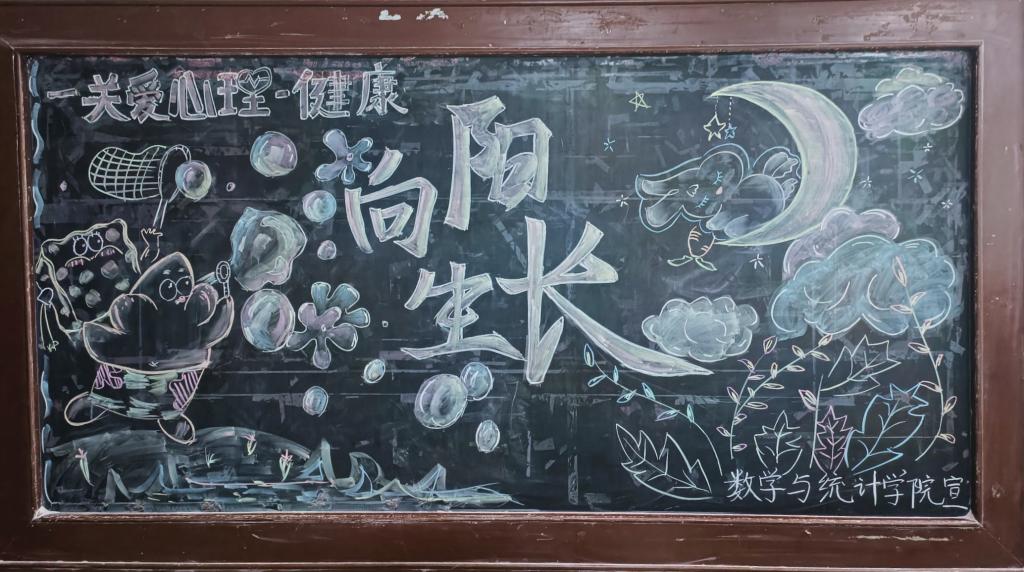 一关爱心理-健康
向阳
生长
数学与统计学院宣